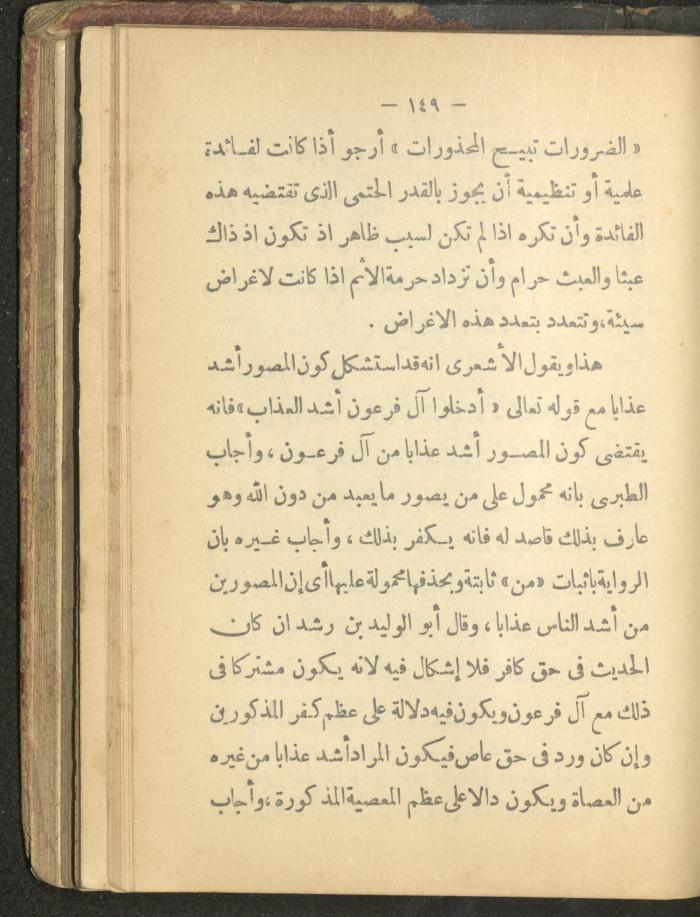 — ١٤٩ —
« الضرورات تبيح المحذورات » أرجو أذا كانت لفائدة
علمية أو تنظيمية أن يجوز بالقدر الحتمى الذى تقتضيه هذه
الفائدة وأن تكره اذا لم تكن لسبب ظاهر اذ تكون اذ ذاك
عبثا والعبث حرام وأن تزداد حرمة الاثم اذا كانت لاغراض
سيئة، وتتعدد بتعدد هذه الاغراض .
هذا ويقول الأشعرى انه قد استشكل كون المصور أشد
عذابا مع قوله تعالى « أدخلوا آل فرعون أشد العذاب » فانه
يقتضى كون المصور أشد عذابا من آل فرعون ، وأجاب
الطبرى بانه محمول على من يصور ما يعبد من دون الله وهو
عارف بذلك قاصد له فانه يكفر بذلك ، وأجاب غيره بان
الرواية باثبات « من » ثابتة وبحذفها محمولة عليها أى إن المصورين
من أشد الناس عذابا ، وقال أبو الوليد بن رشد ان كان
الحديث فى حق كافر فلا إشكال فيه لانه يكون مشتركا فى
ذلك مع آل فرعون ويكون فيه دلالة على عظم كفر المذكورين
وإن كان ورد فى حق عاص فيكون المراد أشد عذابا من غيره
من العصاة ويكون دالا على عظم المعصية المذكورة ، وأجاب